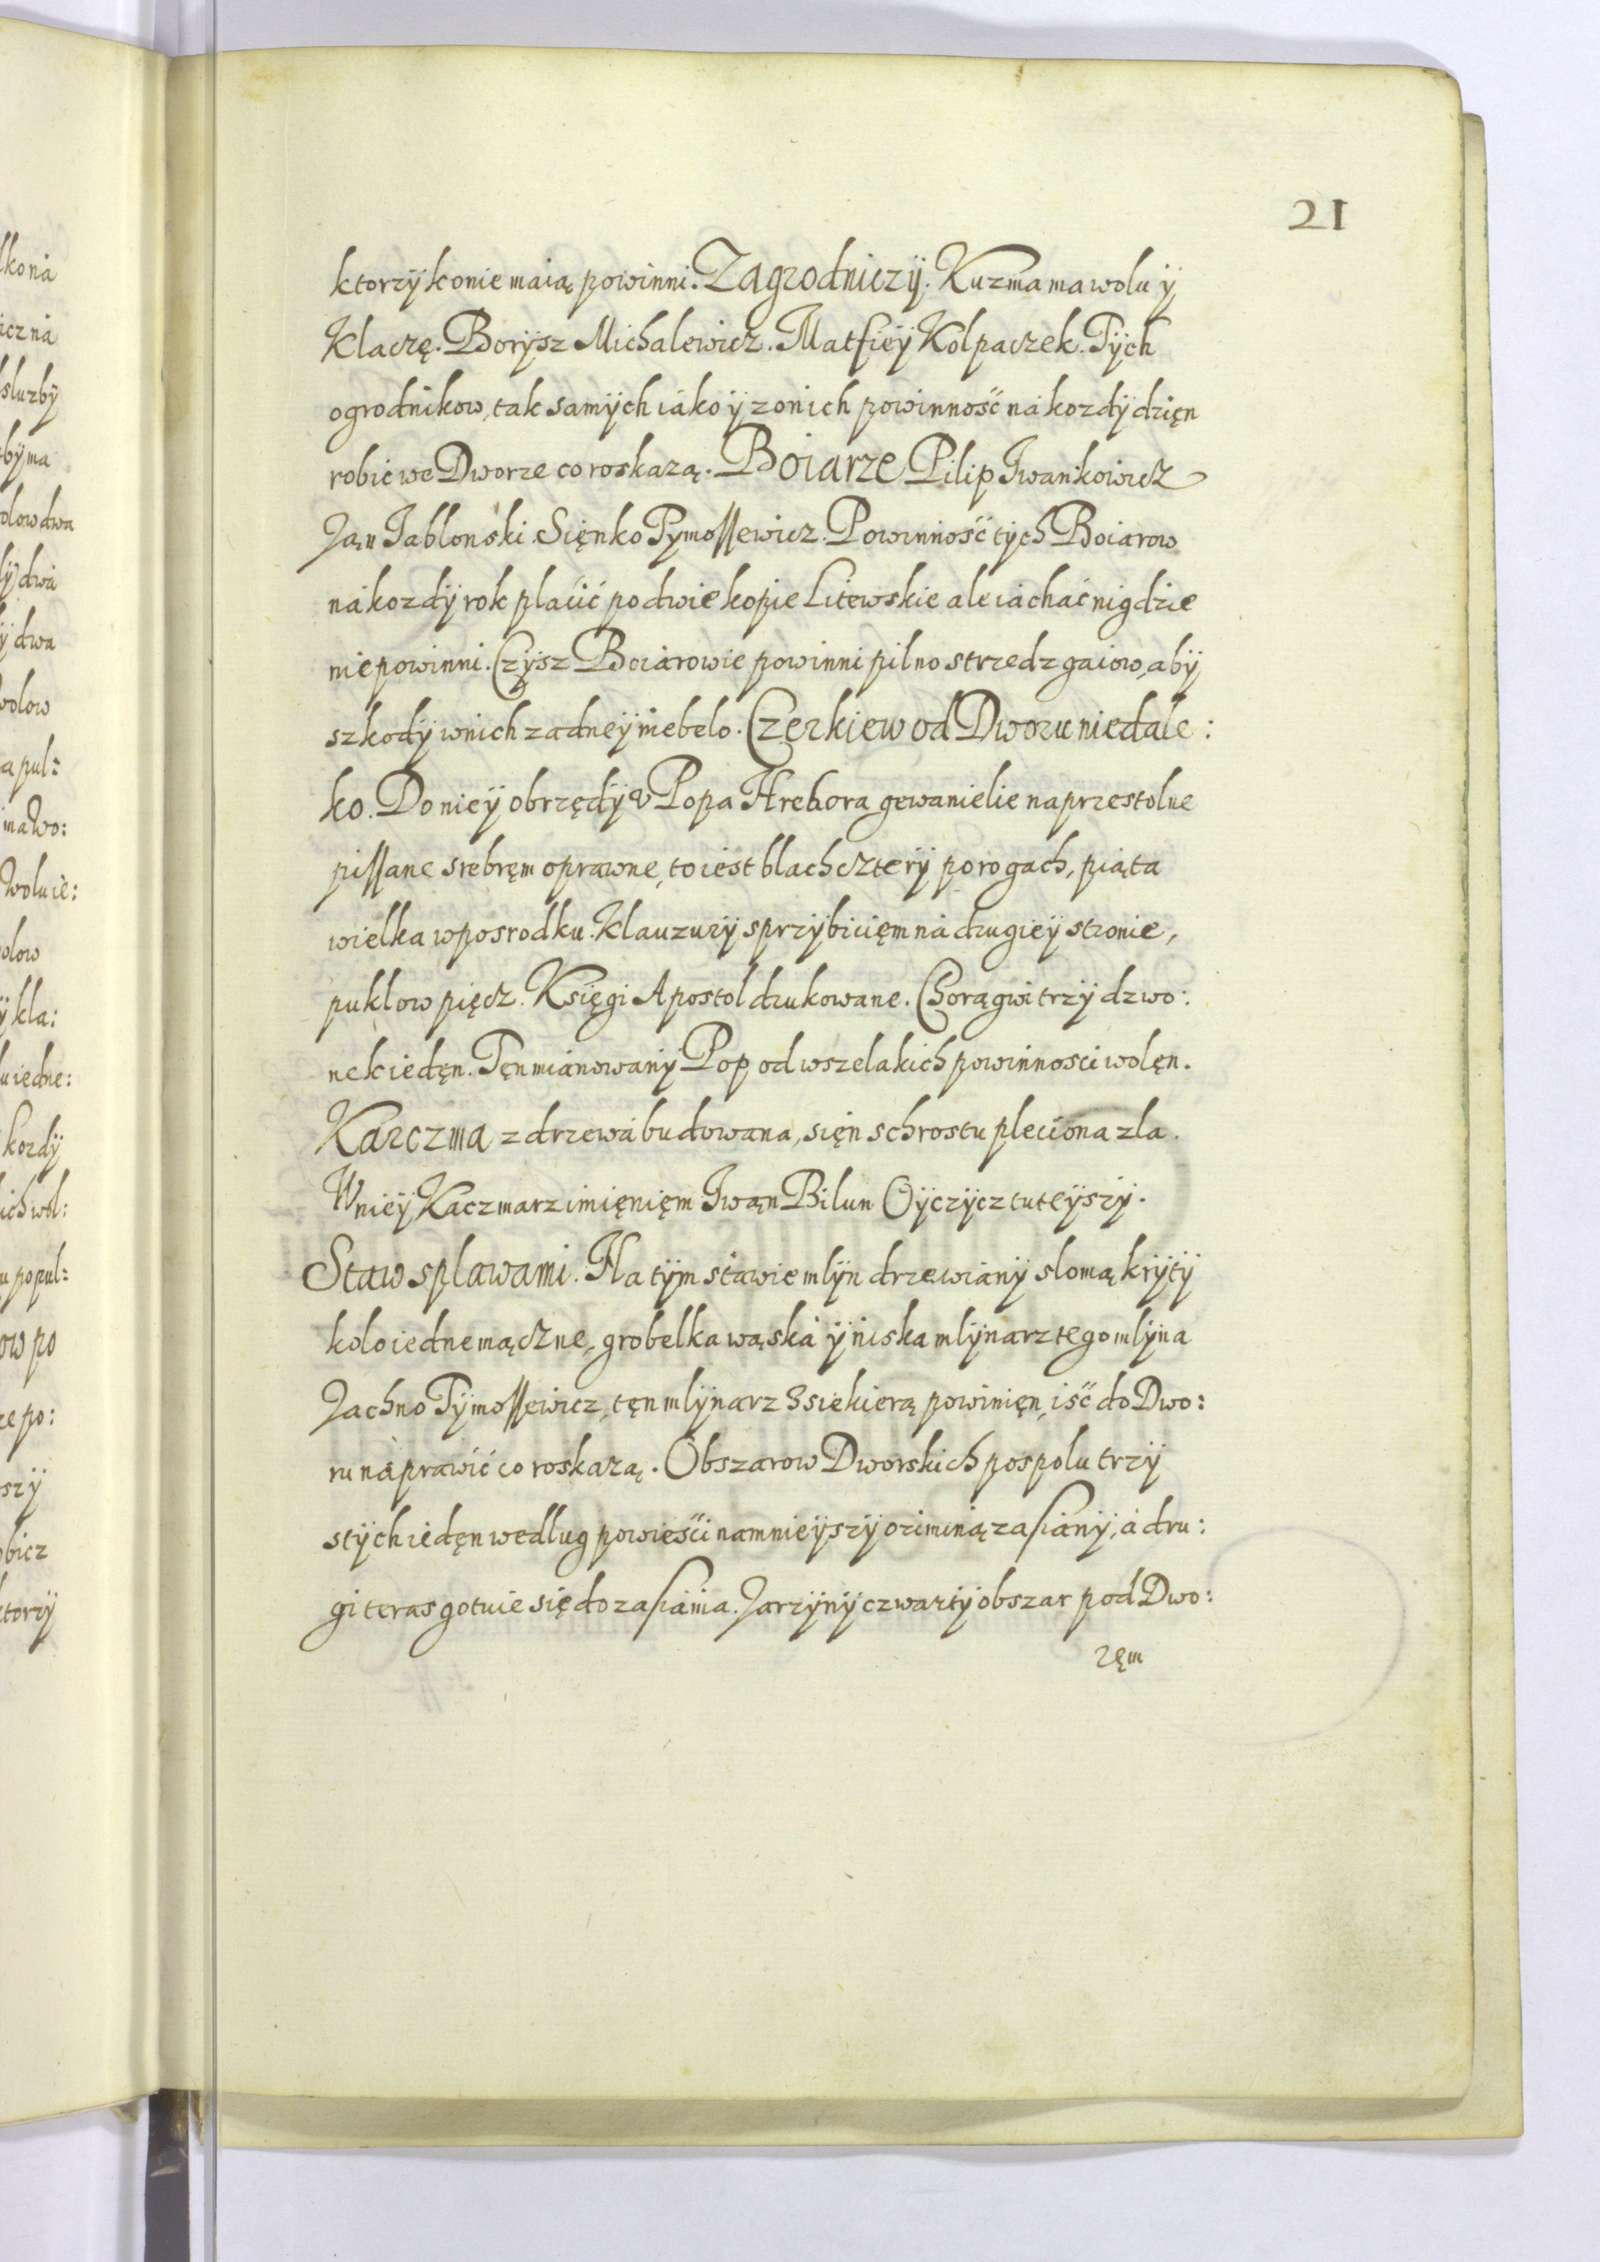 21
ktorzÿ konie maią powinni. Zagrodniczÿ. Kuzma ma wolu ÿ
Klaczę. Borÿsz Michalewicz. Matfieÿ Kolpaczek. Tÿch
ogrodnikow, tak samÿch iáko ÿ zon ich powinność ná kozdÿ dzięn
robić we Dworze co roskazą. Boiarze Pilip Iwankowicz
Ján Iablonski. Sięnko Tymossewicz. Powinność tÿch Boiarow
ná kozdÿ rok placić po dwie kopie Litewskie ale iáchać nigdzie
nie powinni. Czÿsz Boiárowie powinni pilno strzedz gaiow, abÿ
szkodÿ w nich zadneÿ niebelo. Czerkiew od Dworu niedale:
ko. Do nieÿ obrzędÿ v Popa Hrehora gewanielie naprzestolne
pissane srebręm oprawne, to iest blach czterÿ po rogach, piąta
wielka w posrodku. Klauzurÿ s przÿbicięm ná drugieÿ stronie,
puklow pięcz. Księgi Apostol drukowane. Chorągwi trzÿ dzwo:
nek iedęn. Tęn mianowanÿ Pop od wszelakich powinnosci wolęn.
Karczma z drzewá budowana, sięn s chrostu pleciona zla.
W nieÿ Kaczmarz imięnięm Iwąn Bilun Oÿczÿcz tuteÿszÿ.
Staw s plawami. Na tÿm stawie mlÿn drzewianÿ slomą krÿtÿ
kolo iedne mączne, grobelka wąská ÿ niska mlÿnarz tego mlÿna
Jachno Tÿmossewicz, tęn mlÿnarz z siekierą powinięn, iść do Dwo:
ru náprawić co roskazą. Obszarow Dworskich pospolu trzÿ
s tÿch iedęn wedlug powieści namnieÿszÿ oziminą zasianÿ, á dru:
gi teras gotuie się do zasiania. Jarzÿnÿ czwartÿ obszar pod Dwo:
rzęm